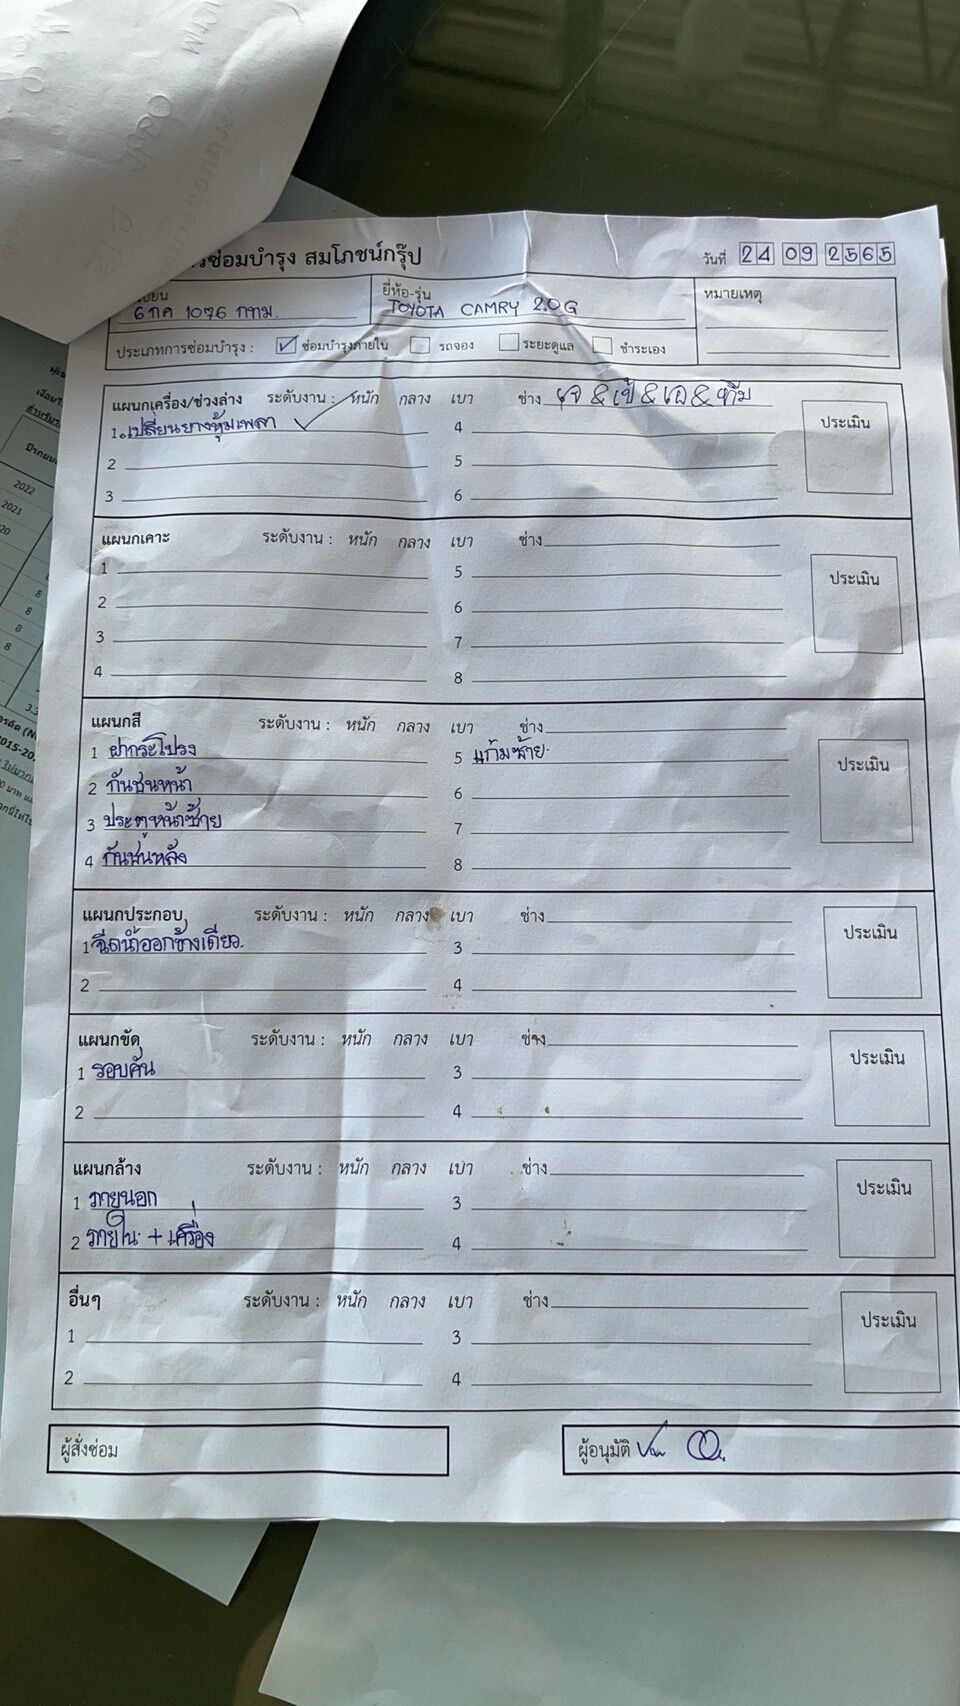 ซ่อมบำรุง สมโภชน์กรุ๊ป
วันที่ 24 09 2565
6กค 1076 กทม.
ยี่ห้อ-รุ่น
TOYOTA CAMRY 2.0G
หมายเหตุ
ประเภทการซ่อมบำรุง : ซ่อมบำรุงภายใน รถจอง ระยะดูแล ชำระเอง
แผนกเครื่อง/ช่วงล่าง ระดับงาน : หนัก กลาง เบา ช่าง
ประเมิน
1. เปลี่ยนยางหุ้มเพลา 4
2 5
3 6
แผนกเคาะ ระดับงาน : หนัก กลาง เบา ช่าง
ประเมิน
1 5
2 6
3 7
4 8
แผนกสี ระดับงาน : หนัก กลาง เบา ช่าง
ประเมิน
1 ฝากระโปรง 5 แก้มซ้าย
2 กันชนหน้า 6
3 ประตูหน้าซ้าย 7
4 กันชนหลัง 8
แผนกประกอบ ระดับงาน : หนัก กลาง เบา ช่าง
ประเมิน
1 ฉีดน้ำออกข้างเดียว 3
2 4
แผนกขัด ระดับงาน : หนัก กลาง เบา ช่าง
ประเมิน
1 รอบคัน 3
2 4
แผนกล้าง ระดับงาน : หนัก กลาง เบา ช่าง
ประเมิน
1 ภายนอก 3
2 ภายใน + เครื่อง 4
อื่นๆ ระดับงาน : หนัก กลาง เบา ช่าง
ประเมิน
1 3
2 4
ผู้สั่งซ่อม
ผู้อนุมัติ
2022
2021
20
8
8
8
8